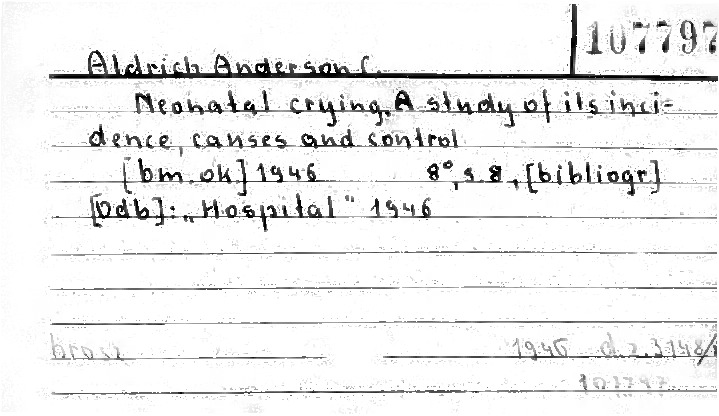 107797
Aldrich Anderson C.
Neonatal crying. A study of its inci-
dence, causes and control
[bm. ok] 1946 8°, s 8, [bibliogr]
[Odb]: „Hospital" 1946
brosz 1946 d.z. 3148/
107797